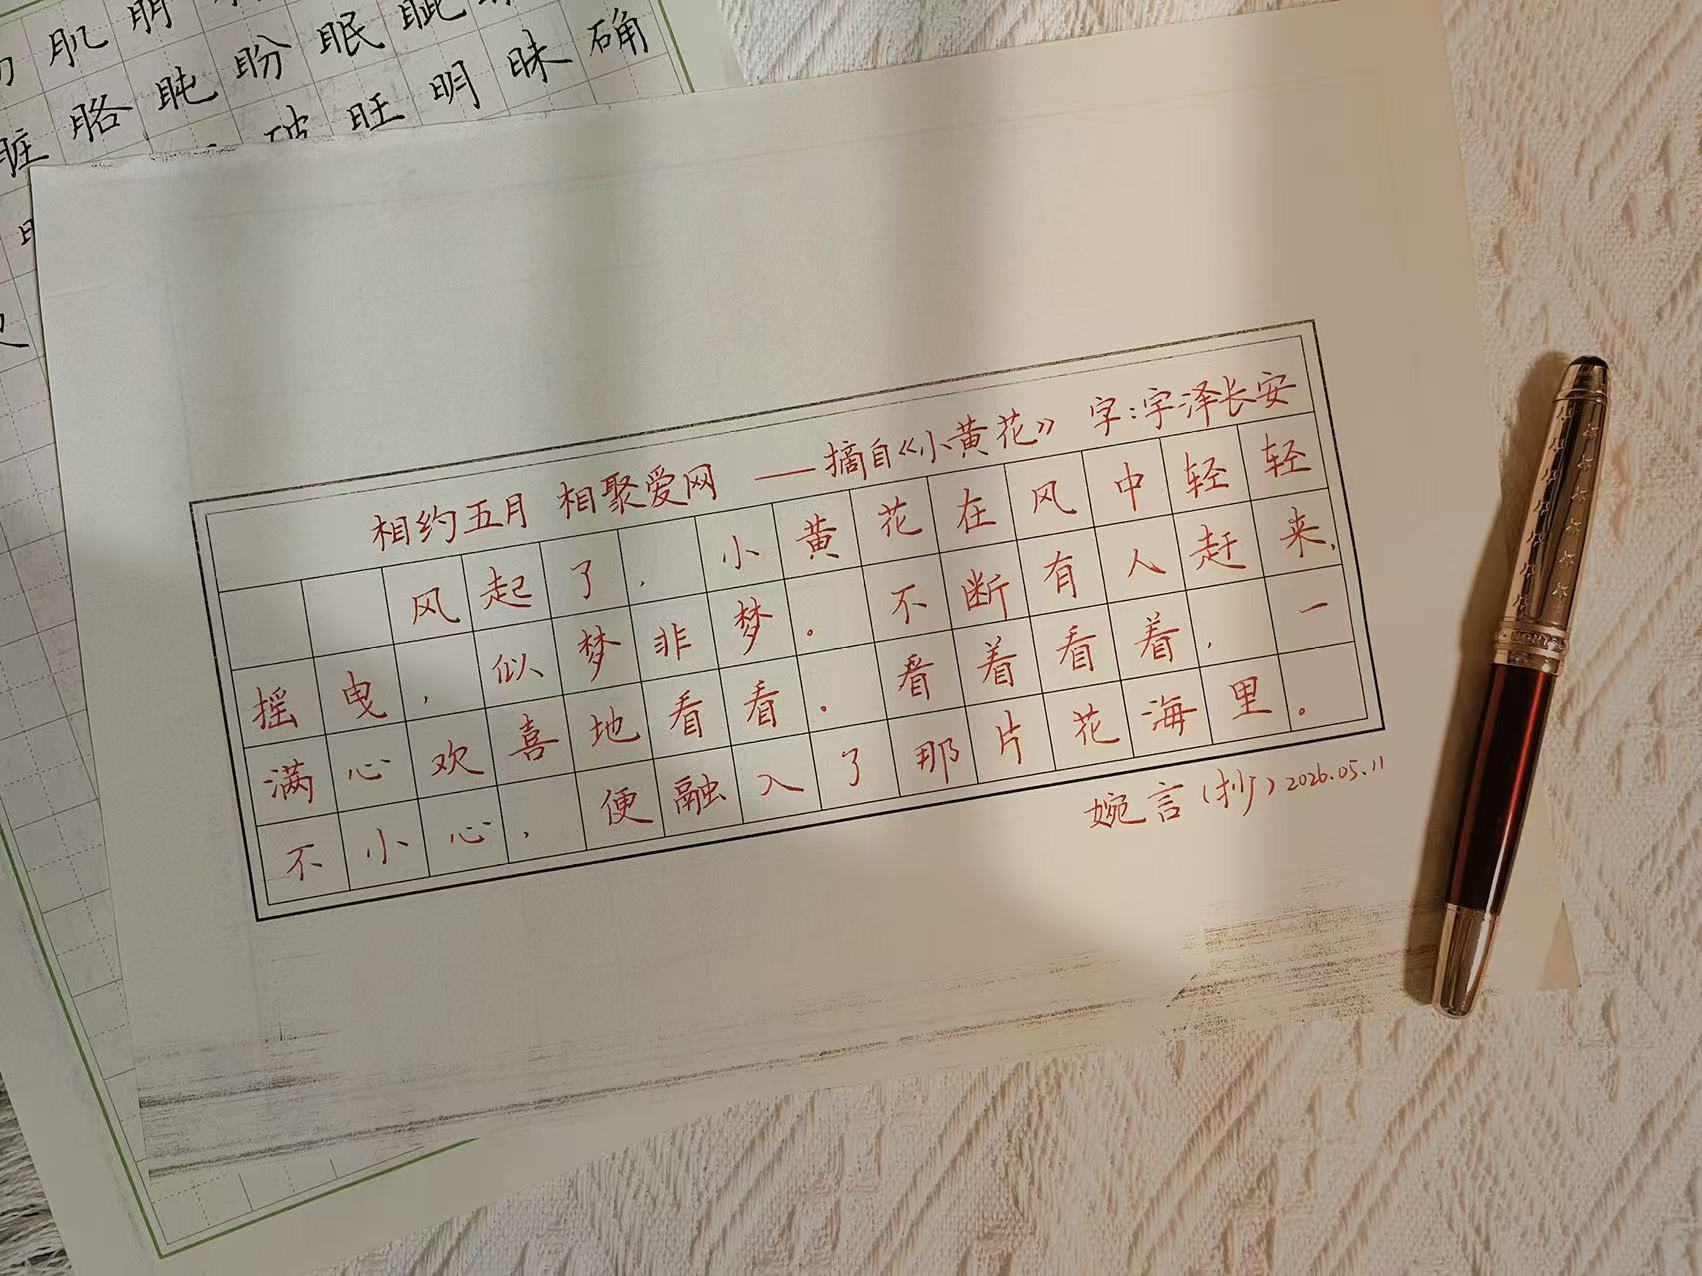 肌
胳 盹 盼 眠
脏 旺 明 昧 确
相约五月 相聚爱网 ——摘自《小黄花》 字:字泽长安
风起了，小黄花在风中轻轻
摇曳，似梦非梦。不断有人赶来，
满心欢喜地看看。看着看着，一
不小心，便融入了那片花海里。
婉言(抄)2026.05.11